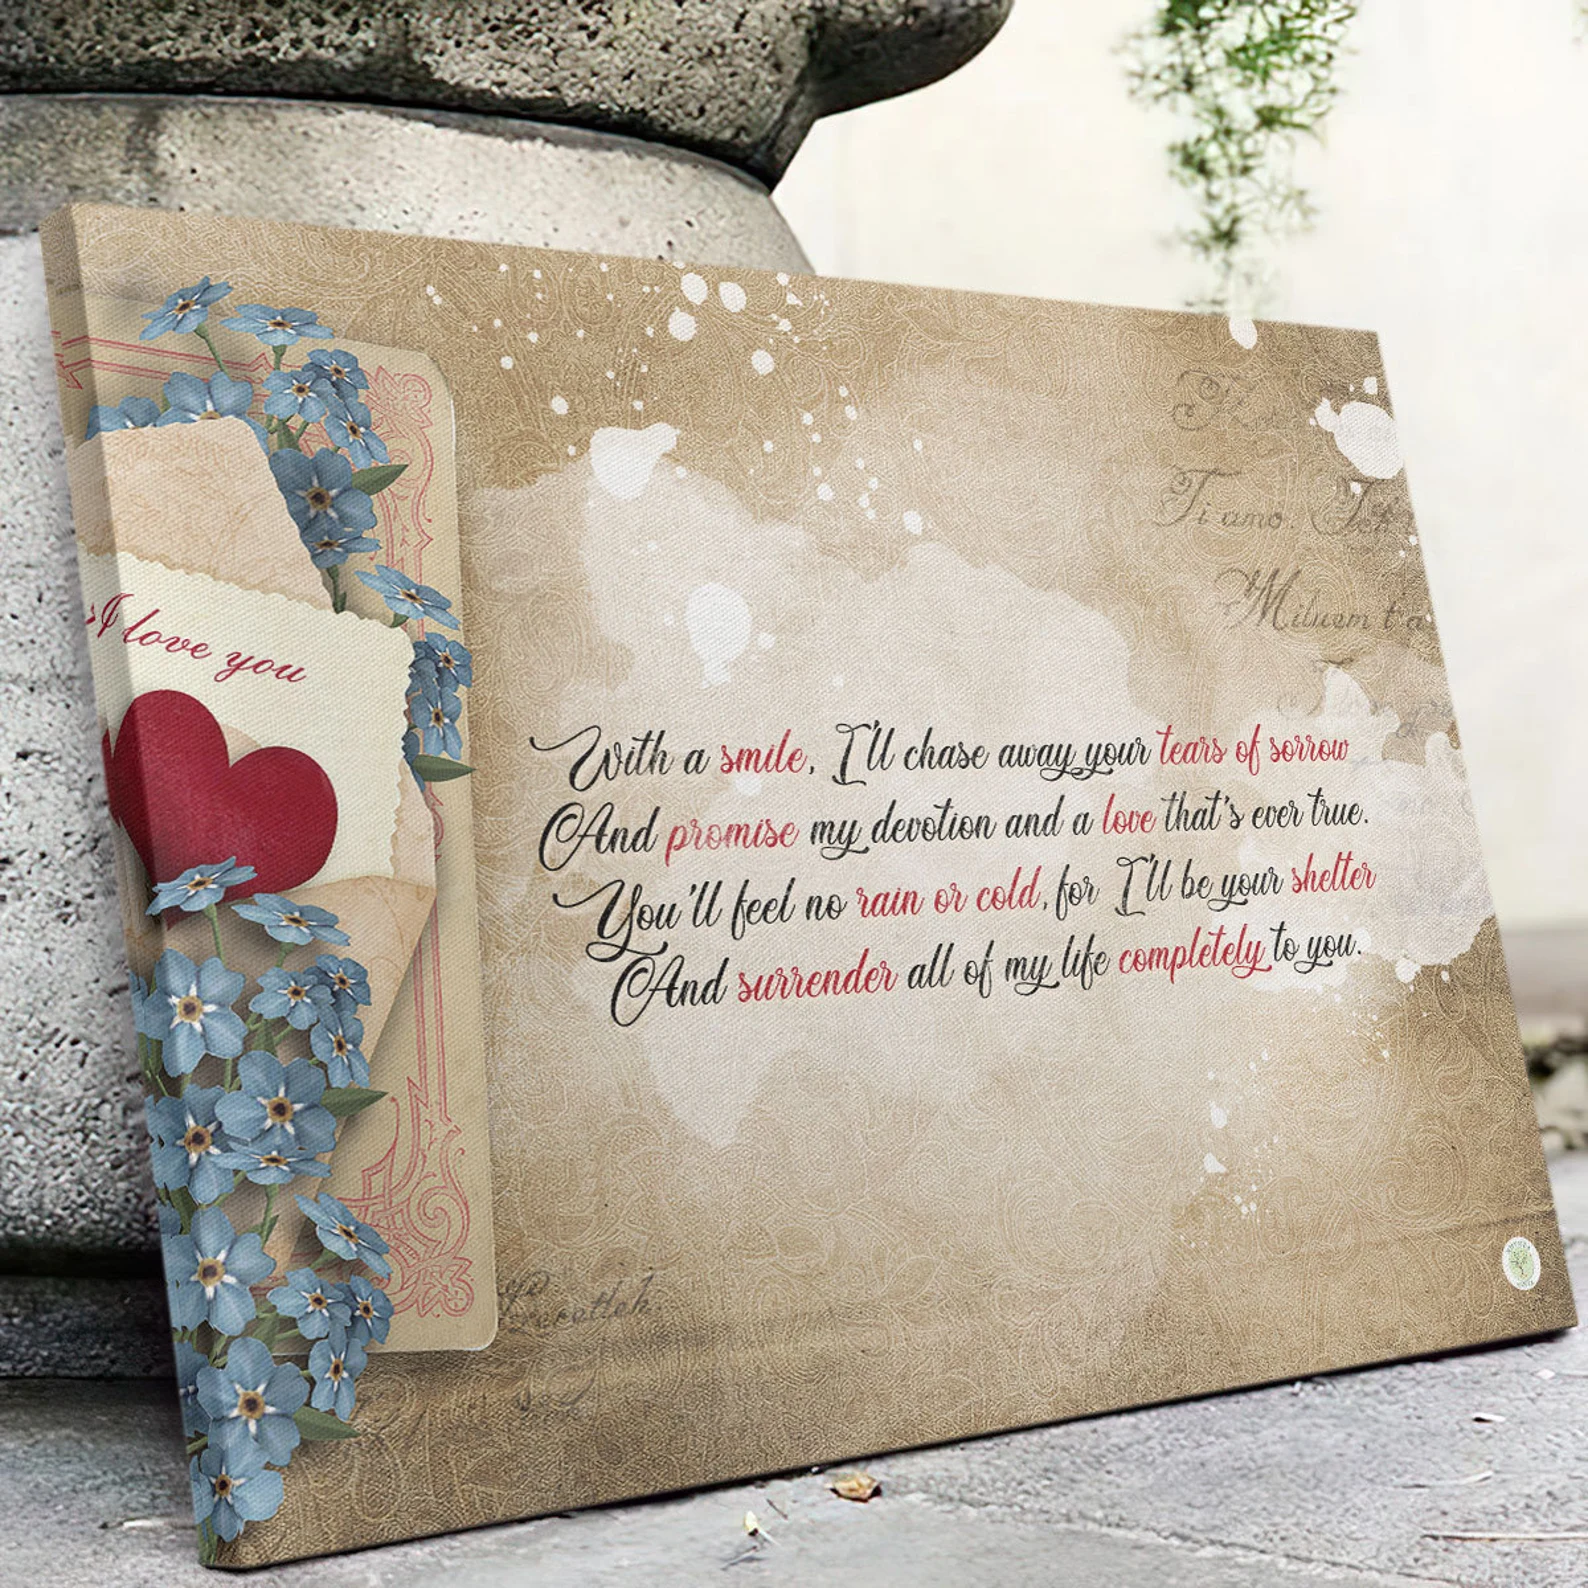 I love you
Ti amo.
With a smile, I'll chase away your tears of sorrow
And promise my devotion and a love that's ever true.
You'll feel no rain or cold, for I'll be your shelter
And surrender all of my life completely to you.